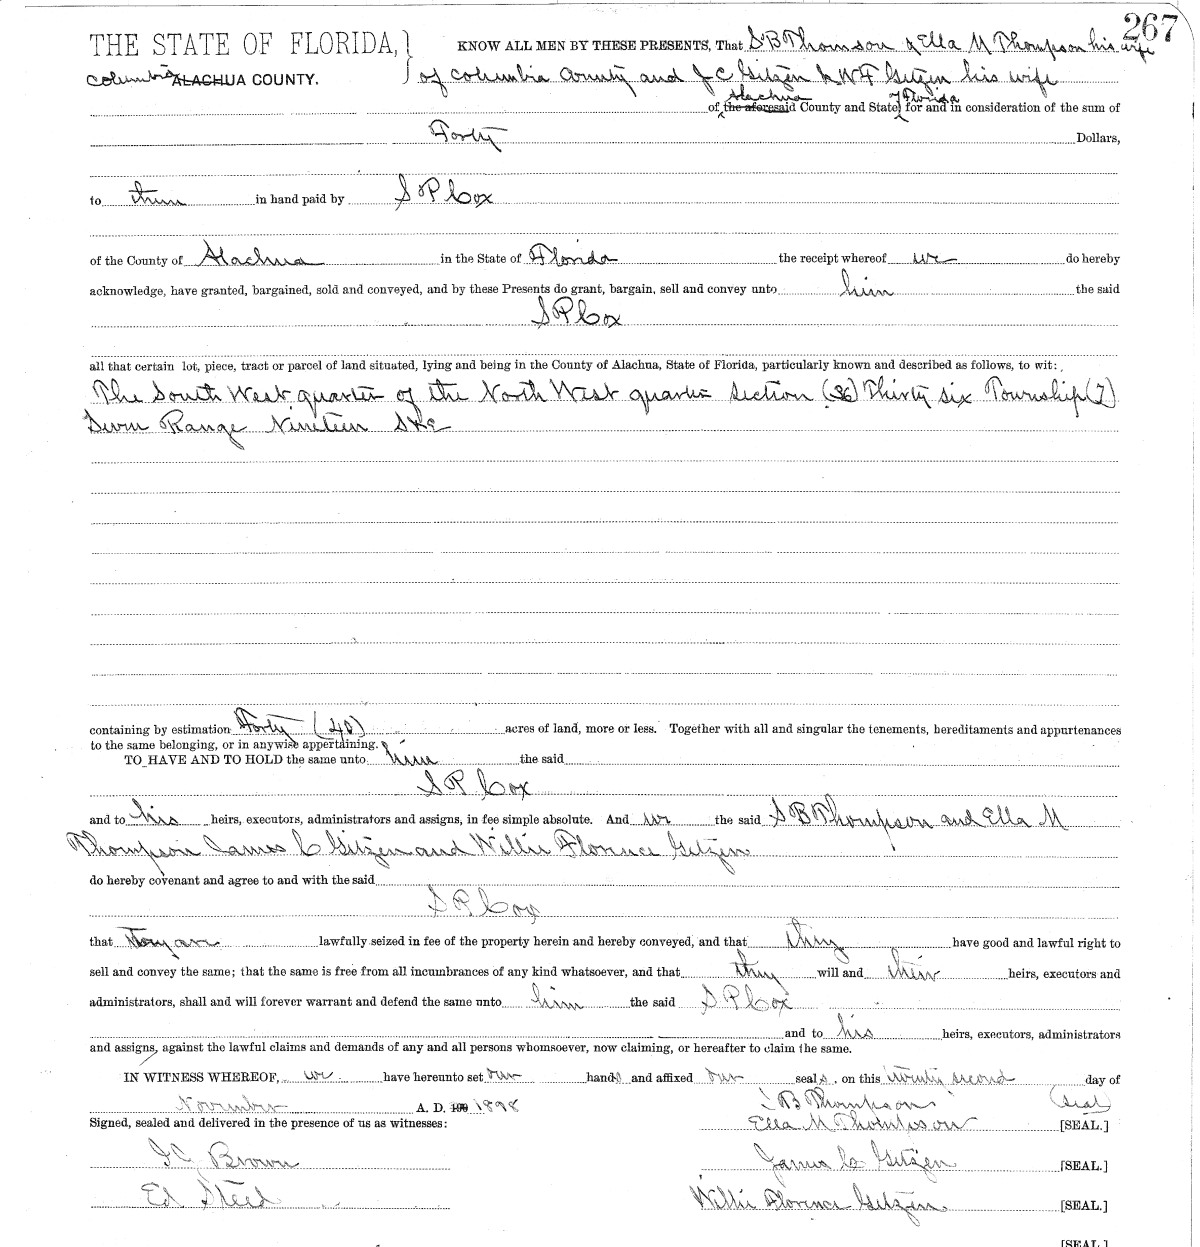 267
THE STATE OF FLORIDA,
Columbia ALACHUA COUNTY.
KNOW ALL MEN BY THESE PRESENTS, That S B Thomson & Ella M Thompson his wife
of Columbia County and J C Getzen & W F Getzen his wife
of the aforesaid Alachua County and State of Florida for and in consideration of the sum of
Forty Dollars,
to them in hand paid by S P Cox
of the County of Alachua in the State of Florida the receipt whereof we do hereby
acknowledge, have granted, bargained, sold and conveyed, and by these Presents do grant, bargain, sell and convey unto him the said
S P Cox
all that certain lot, piece, tract or parcel of land situated, lying and being in the County of Alachua, State of Florida, particularly known and described as follows, to wit:
The South West quarter of the North West quarter Section (36) Thirty six Township (7)
Seven Range Nineteen S & E
containing by estimation Forty (40) acres of land, more or less. Together with all and singular the tenements, hereditaments and appurtenances
to the same belonging, or in anywise appertaining.
TO HAVE AND TO HOLD the same unto him the said
S P Cox
and to his heirs, executors, administrators and assigns, in fee simple absolute. And we the said S B Thompson and Ella M
Thompson James C Getzen and Willie Florence Getzen
do hereby covenant and agree to and with the said
S P Cox
that They are lawfully seized in fee of the property herein and hereby conveyed, and that they have good and lawful right to
sell and convey the same; that the same is free from all incumbrances of any kind whatsoever, and that they will and their heirs, executors and
administrators, shall and will forever warrant and defend the same unto him the said S P Cox
and to his heirs, executors, administrators
and assigns, against the lawful claims and demands of any and all persons whomsoever, now claiming, or hereafter to claim the same.
IN WITNESS WHEREOF, we have hereunto set our hands and affixed our seals, on this twenty second day of
November A. D. 1898
S B Thompson (seal)
Signed, sealed and delivered in the presence of us as witnesses:
Ella M Thompson [SEAL.]
Brown
James C Getzen [SEAL.]
Ed Steed
Willie Florence Getzen [SEAL.]
[SEAL.]